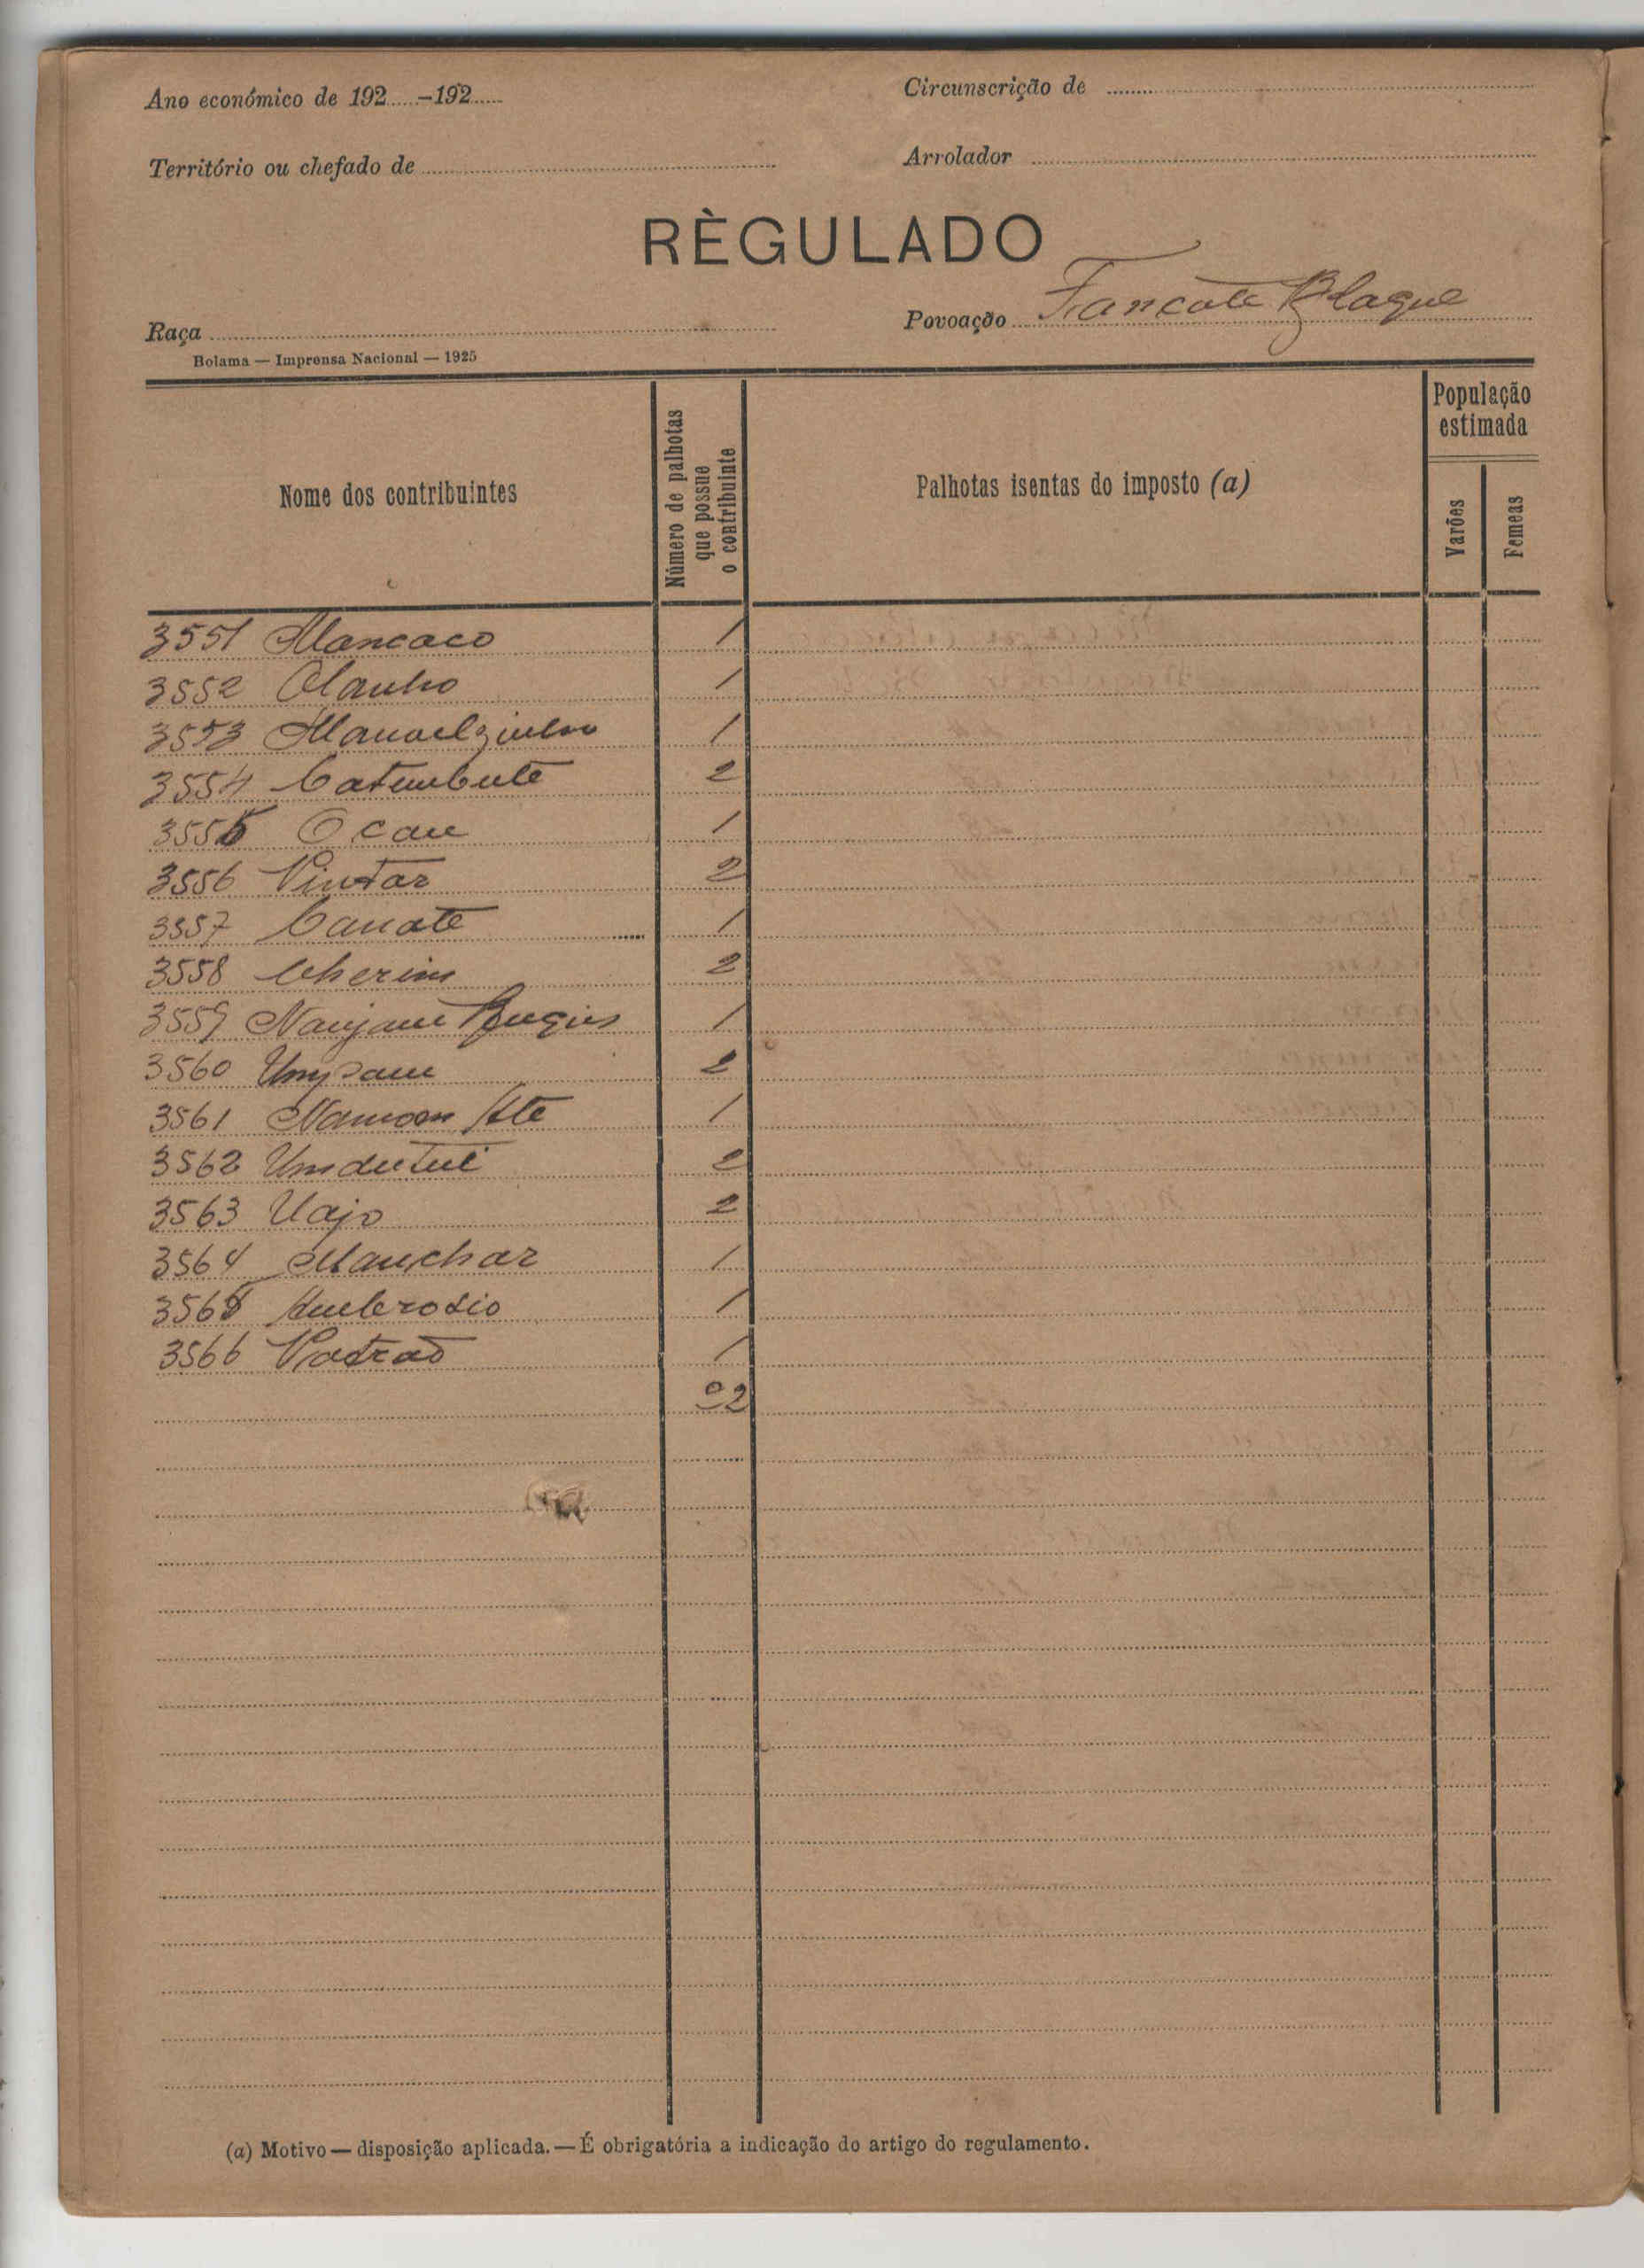 Ano económico de 192.....-192.....
Circunscrição de
Território ou chefado de
Arrolador
RÈGULADO
Raça
Povoação Fancote Blaque
Bolama — Imprensa Nacional — 1925
Nome dos contribuintes
Número de palhotas que possue o contribuinte
Palhotas isentas do imposto (a)
População estimada
Varões
Femeas
3551 Mancaco 1
3552 Olanho 1
3553 Manoelzinho 1
3554 Catumbute 2
3555 Ocau 1
3556 Pintar 2
3557 Canate 1
3558 Cherim 2
3559 1
3560 2
3561 1
3562 Undutui 2
3563 Uajo 2
3564 Manchar 1
3565 Ambrosio 1
3566 Padrao 1
22
(a) Motivo — disposição aplicada. — É obrigatória a indicação do artigo do regulamento.